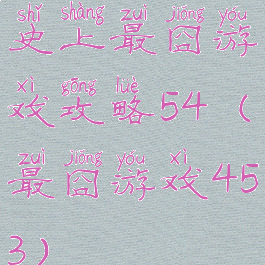 shǐ shàng zuì jiǒng yóu
史上最囧游
xì gōng lüè
戏攻略54（
zuì jiǒng yóu xì
最囧游戏45
3）